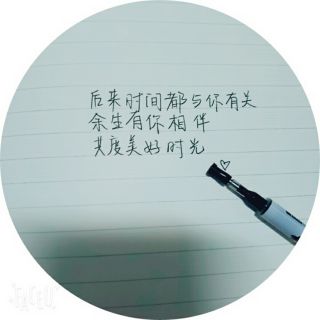 后来时间都与你有关
余生有你相伴
共度美好时光